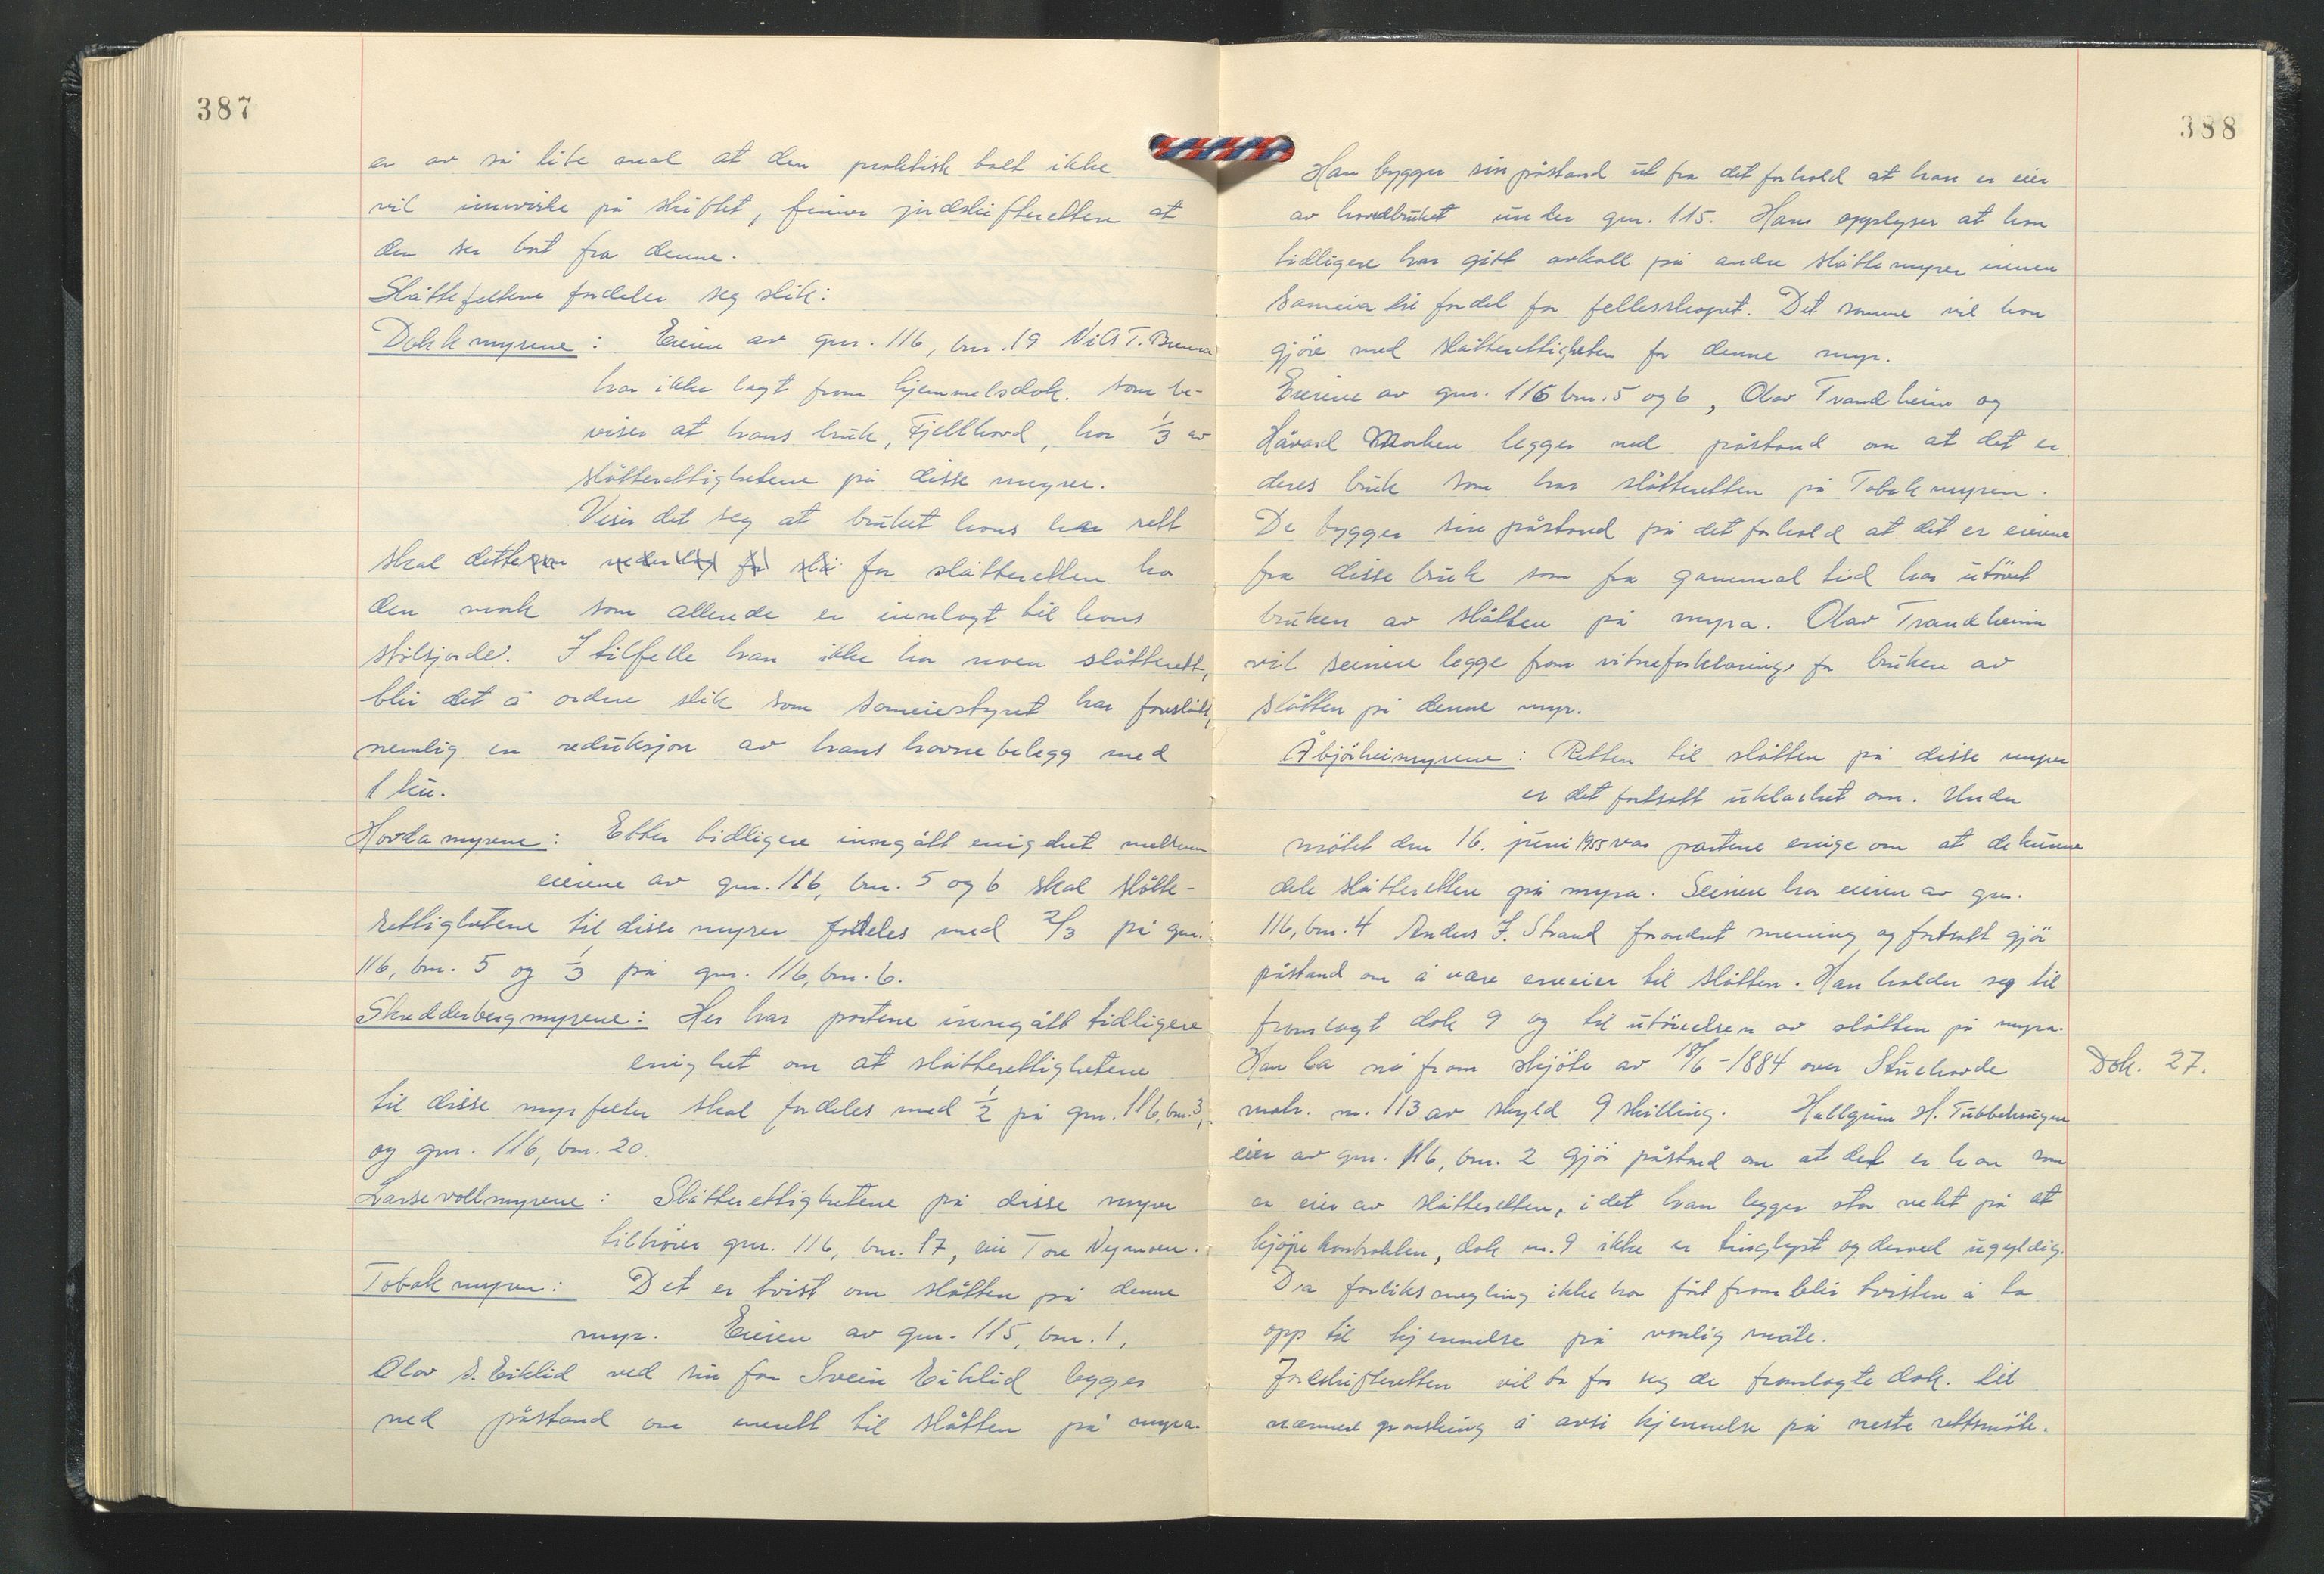 387
er av så lite areal at den praktisk talt ikke
vil innvirke på skiftet, finner jordskifteretten at
den ser bort fra denne.
Slåttefeltene fordeler seg slik:
Dokkmyrene: Eieren av gnr. 116, bnr. 19 Nils T. Brenna
har ikke lagt fram hjemmelsdok. som be-
viser at hans bruk, Fjellhord, har 1/3 av
slåtterettighetene på disse myrer.
Viser det seg at bruket hans har rett
skal dette for slåtteretten ha
den mark som allerede er innlagt til hans
stølsjorde. I tilfelle han ikke har noen slåtterett,
blir det å ordne slik som sameiestyret har foreslått,
nemlig en reduksjon av hans havnebelegg med
1 ku.
Hovdamyrene: Etter tidligere inngått enighet mellom
eierne av gnr. 116, bnr. 5 og 6 skal slåtte-
rettighetene til disse myrer fordeles med 2/3 på gnr.
116, bnr. 5 og 1/3 på gnr. 116, bnr. 6.
Skudderbergmyrene: Her har partene inngått tidligere
enighet om at slåtterettighetene
til disse myrfelter skal fordeles med 1/2 på gnr. 116, bnr. 3,
og gnr. 116, bnr. 20.
Larsevollmyrene: Slåtterettighetene på disse myrer
tilhører gnr. 116, bnr. 17, eier Tore Nymoen.
Tobakmyren: Det er tvist om slåtten på denne
myr. Eieren av gnr. 115, bnr. 1,
Olav S. Eiklid ved sin far Svein Eiklid legger
ned påstand om enerett til slåtten på myra.
388
Han bygger sin påstand ut fra det forhold at han er eier
av hovedbruket under gnr. 115. Han opplyser at han
tidligere har gitt avkall på andre slåttemyrer innen
sameia til fordel for fellesskapet. Det samme vil han
gjøre med slåtterettigheten for denne myr.
Eierene av gnr. 116 bnr. 5 og 6, Olav Trandheim og
Håvard Morken legger ned påstand om at det er
deres bruk som har slåtteretten på Tobakmyren.
De bygger sin påstand på det forhold at det er eierne
fra disse bruk som fra gammal tid har utövet
bruken av slåtten på myra. Olav Trandheim
vil seinere legge fram vitneforklaring for bruken av
slåtten på denne myr.
Åbjörheimyrene: Retten til slåtten på disse myrer
er det fortsatt uklarhet om. Under
mötet den 16. juni 1955 var partene enige om at de kunne
dele slåtteretten på myra. Seinere har eieren av gnr.
116, bnr. 4 Anders J. Strand forandret mening og fortsatt gjör
påstand om å være eneeier til slåtten. Han holder seg til
framlagt dok 9 og til utövelsen av slåtten på myra.
Han la nå fram skjöte av 18/6-1884 over Stuehovde
Dok. 27.
matr. nr. 113 av skyld 9 skilling. Hallgrim H. Tubbehaugen
eier av gnr. 116, bnr. 2 gjör påstand om at det er han som
er eier av slåtteretten, i det han legger stor vekt på at
kjöpekontrakten, dok nr. 9 ikke er tinglyst og derved ugyldig.
Da forliksmegling ikke har fört fram blir tvisten å ta
opp til kjennelse på vanlig måte.
Jordskifteretten vil ta for seg de framlagte dok. til
nærmere gransking å avsi kjennelse på neste rettsmöte.